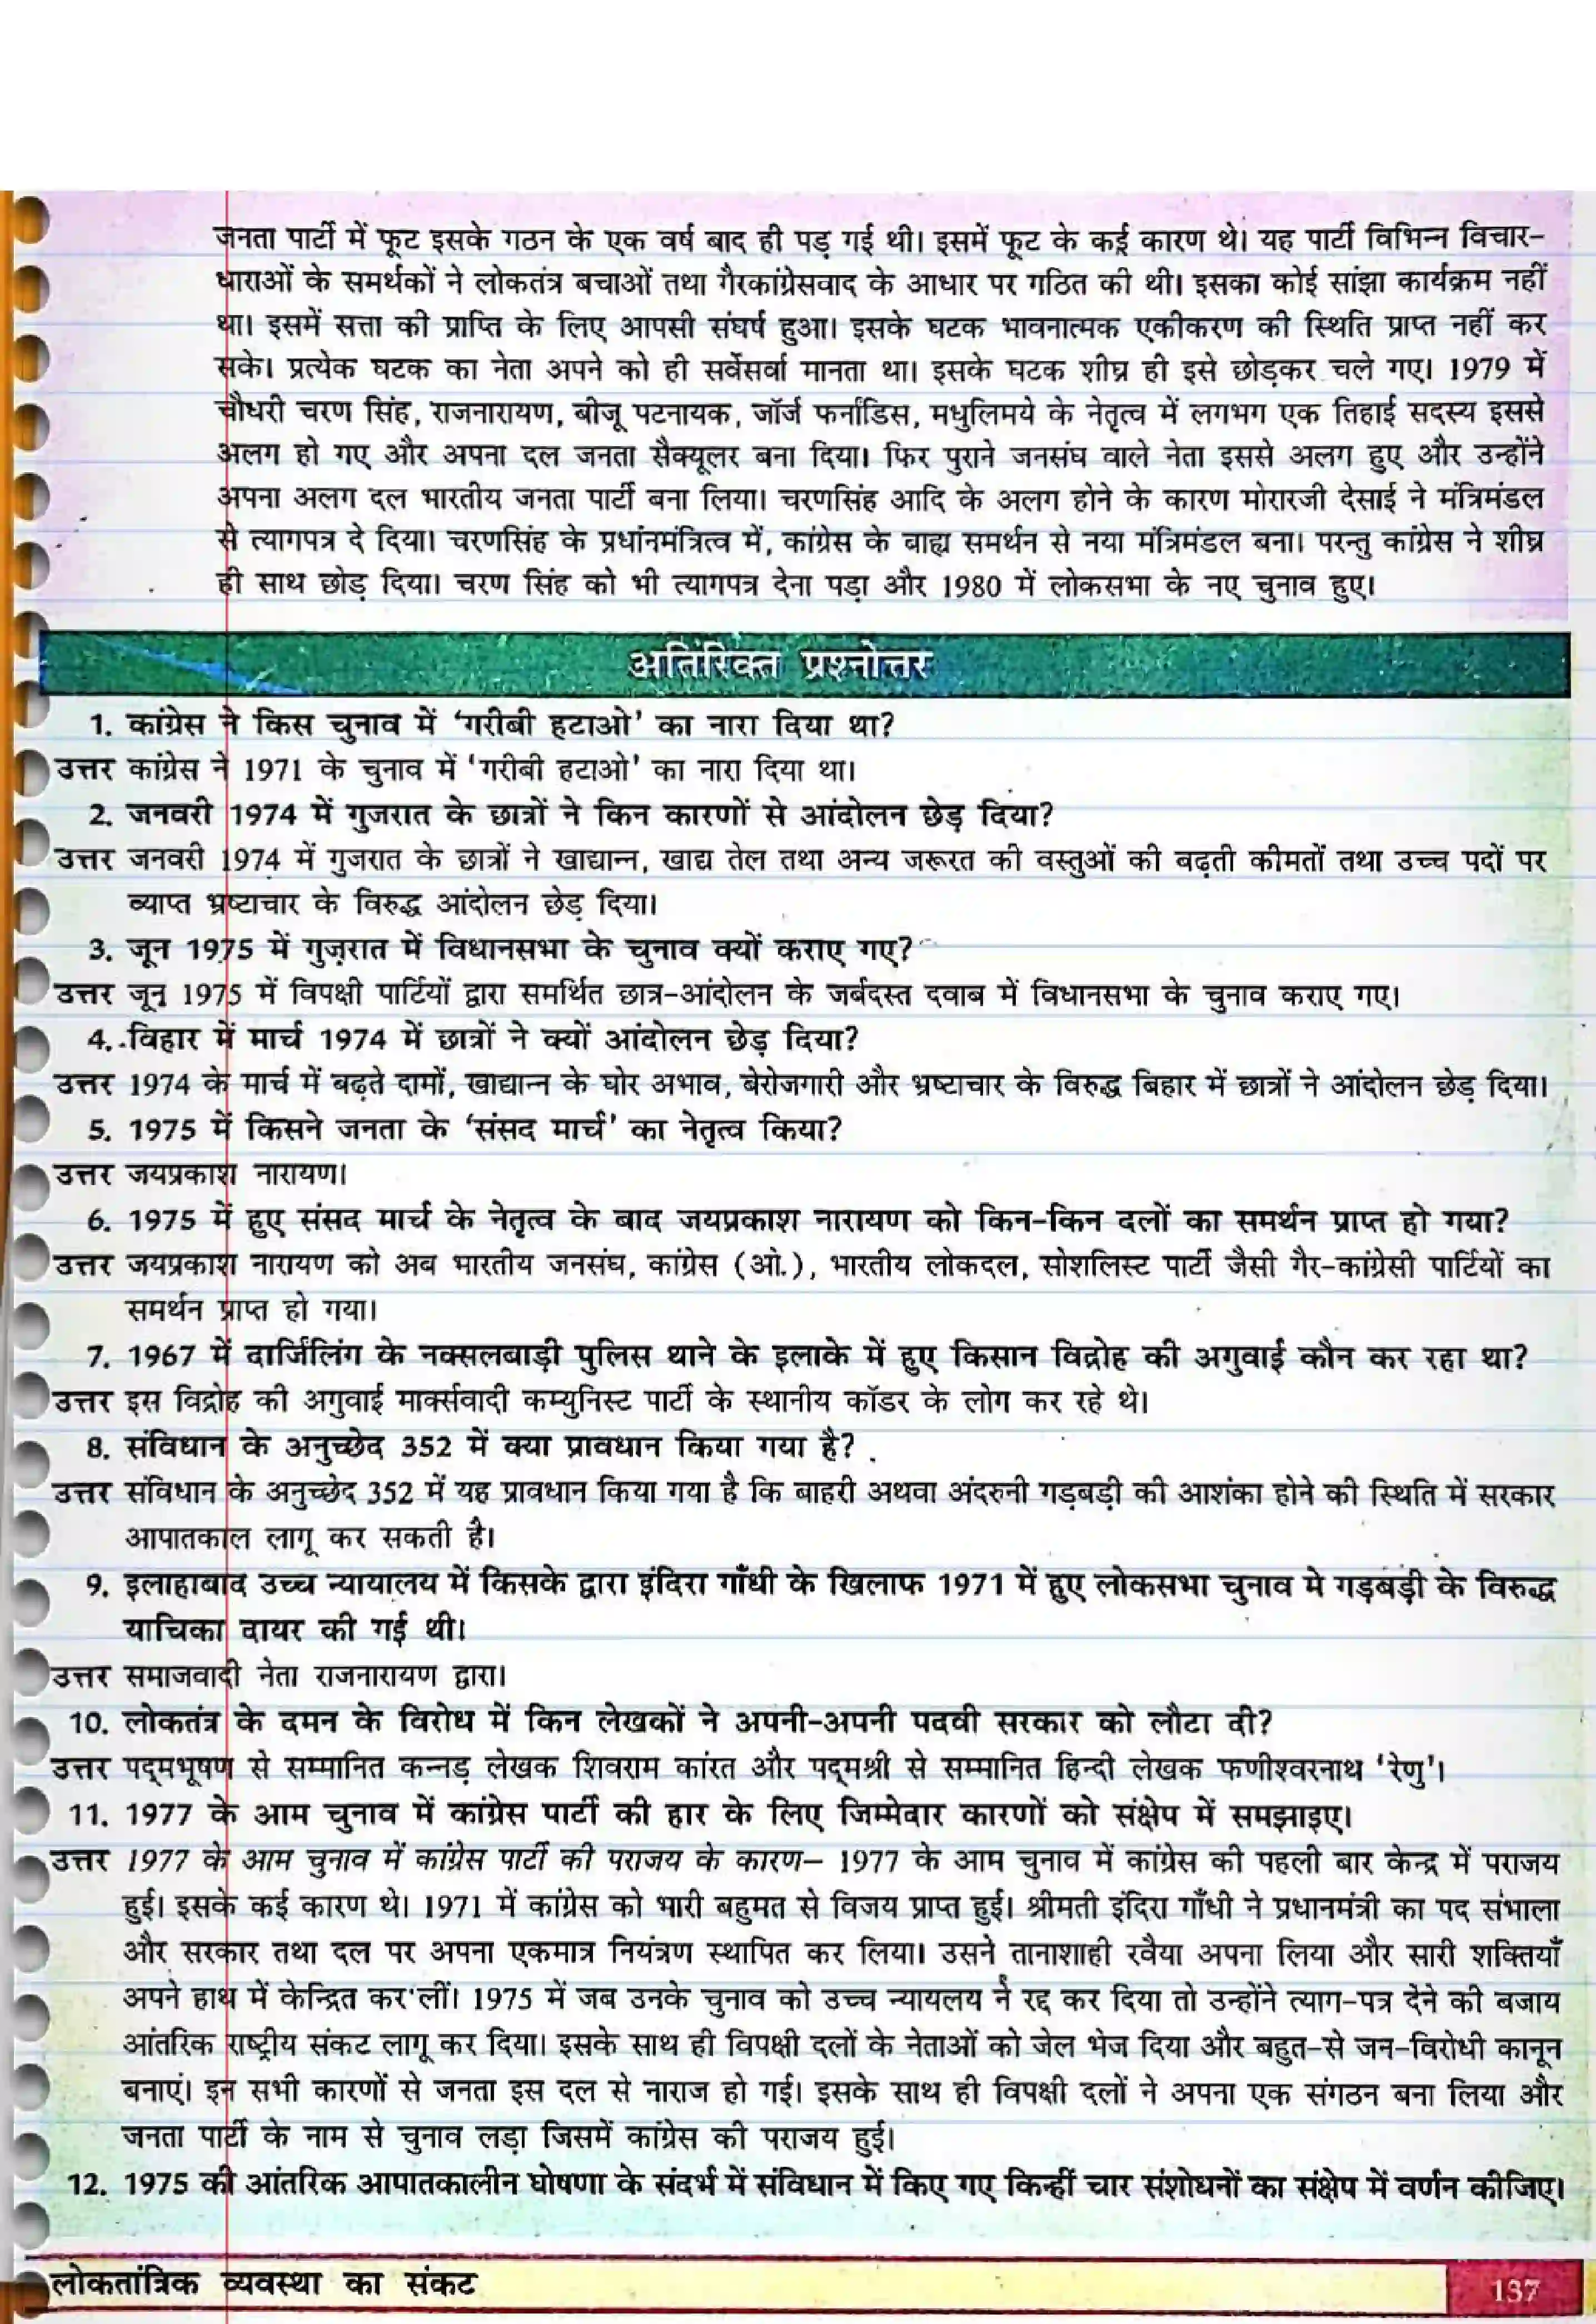 जनता पार्टी में फूट इसके गठन के एक वर्ष बाद ही पड़ गई थी। इसमें फूट के कई कारण थे। यह पार्टी विभिन्न विचार-
धाराओं के समर्थकों ने लोकतंत्र बचाओं तथा गैरकांग्रेसवाद के आधार पर गठित की थी। इसका कोई सांझा कार्यक्रम नहीं
था। इसमें सत्ता की प्राप्ति के लिए आपसी संघर्ष हुआ। इसके घटक भावनात्मक एकीकरण की स्थिति प्राप्त नहीं कर
सके। प्रत्येक घटक का नेता अपने को ही सर्वेसर्वा मानता था। इसके घटक शीघ्र ही इसे छोड़कर चले गए। 1979 में
चौधरी चरण सिंह, राजनारायण, बीजू पटनायक, जॉर्ज फर्नांडिस, मधुलिमये के नेतृत्व में लगभग एक तिहाई सदस्य इससे
अलग हो गए और अपना दल जनता सैक्यूलर बना दिया। फिर पुराने जनसंघ वाले नेता इससे अलग हुए और उन्होंने
अपना अलग दल भारतीय जनता पार्टी बना लिया। चरणसिंह आदि के अलग होने के कारण मोरारजी देसाई ने मंत्रिमंडल
से त्यागपत्र दे दिया। चरणसिंह के प्रधानमंत्रित्व में, कांग्रेस के बाह्य समर्थन से नया मंत्रिमंडल बना। परन्तु कांग्रेस ने शीघ्र
ही साथ छोड़ दिया। चरण सिंह को भी त्यागपत्र देना पड़ा और 1980 में लोकसभा के नए चुनाव हुए।
अतिरिक्त प्रश्नोत्तर
1. कांग्रेस ने किस चुनाव में 'गरीबी हटाओ' का नारा दिया था?
उत्तर कांग्रेस ने 1971 के चुनाव में 'गरीबी हटाओ' का नारा दिया था।
2. जनवरी 1974 में गुजरात के छात्रों ने किन कारणों से आंदोलन छेड़ दिया?
उत्तर जनवरी 1974 में गुजरात के छात्रों ने खाद्यान्न, खाद्य तेल तथा अन्य जरूरत की वस्तुओं की बढ़ती कीमतों तथा उच्च पदों पर
व्याप्त भ्रष्टाचार के विरुद्ध आंदोलन छेड़ दिया।
3. जून 1975 में गुजरात में विधानसभा के चुनाव क्यों कराए गए?
उत्तर जून 1975 में विपक्षी पार्टियों द्वारा समर्थित छात्र-आंदोलन के जर्बदस्त दवाब में विधानसभा के चुनाव कराए गए।
4. विहार में मार्च 1974 में छात्रों ने क्यों आंदोलन छेड़ दिया?
उत्तर 1974 के मार्च में बढ़ते दामों, खाद्यान्न के घोर अभाव, बेरोजगारी और भ्रष्टाचार के विरुद्ध बिहार में छात्रों ने आंदोलन छेड़ दिया।
5. 1975 में किसने जनता के 'संसद मार्च' का नेतृत्व किया?
उत्तर जयप्रकाश नारायण।
6. 1975 में हुए संसद मार्च के नेतृत्व के बाद जयप्रकाश नारायण को किन-किन दलों का समर्थन प्राप्त हो गया?
उत्तर जयप्रकाश नारायण को अब भारतीय जनसंघ, कांग्रेस (ओ.), भारतीय लोकदल, सोशलिस्ट पार्टी जैसी गैर-कांग्रेसी पार्टियों का
समर्थन प्राप्त हो गया।
7. 1967 में दार्जिलिंग के नक्सलबाड़ी पुलिस थाने के इलाके में हुए किसान विद्रोह की अगुवाई कौन कर रहा था?
उत्तर इस विद्रोह की अगुवाई मार्क्सवादी कम्युनिस्ट पार्टी के स्थानीय कॉडर के लोग कर रहे थे।
8. संविधान के अनुच्छेद 352 में क्या प्रावधान किया गया है?
उत्तर संविधान के अनुच्छेद 352 में यह प्रावधान किया गया है कि बाहरी अथवा अंदरुनी गड़बड़ी की आशंका होने की स्थिति में सरकार
आपातकाल लागू कर सकती है।
9. इलाहाबाद उच्च न्यायालय में किसके द्वारा इंदिरा गाँधी के खिलाफ 1971 में हुए लोकसभा चुनाव मे गड़बड़ी के विरुद्ध
याचिका दायर की गई थी।
उत्तर समाजवादी नेता राजनारायण द्वारा।
10. लोकतंत्र के दमन के विरोध में किन लेखकों ने अपनी-अपनी पदवी सरकार को लौटा दी?
उत्तर पद्मभूषण से सम्मानित कन्नड़ लेखक शिवराम कांरत और पद्मश्री से सम्मानित हिन्दी लेखक फणीश्वरनाथ 'रेणु'।
11. 1977 के आम चुनाव में कांग्रेस पार्टी की हार के लिए जिम्मेदार कारणों को संक्षेप में समझाइए।
उत्तर 1977 के आम चुनाव में कांग्रेस पार्टी की पराजय के कारण– 1977 के आम चुनाव में कांग्रेस की पहली बार केन्द्र में पराजय
हुई। इसके कई कारण थे। 1971 में कांग्रेस को भारी बहुमत से विजय प्राप्त हुई। श्रीमती इंदिरा गाँधी ने प्रधानमंत्री का पद संभाला
और सरकार तथा दल पर अपना एकमात्र नियंत्रण स्थापित कर लिया। उसने तानाशाही रवैया अपना लिया और सारी शक्तियाँ
अपने हाथ में केन्द्रित कर लीं। 1975 में जब उनके चुनाव को उच्च न्यायलय ने रद्द कर दिया तो उन्होंने त्याग-पत्र देने की बजाय
आंतरिक राष्ट्रीय संकट लागू कर दिया। इसके साथ ही विपक्षी दलों के नेताओं को जेल भेज दिया और बहुत-से जन-विरोधी कानून
बनाएं। इन सभी कारणों से जनता इस दल से नाराज हो गई। इसके साथ ही विपक्षी दलों ने अपना एक संगठन बना लिया और
जनता पार्टी के नाम से चुनाव लड़ा जिसमें कांग्रेस की पराजय हुई।
12. 1975 की आंतरिक आपातकालीन घोषणा के संदर्भ में संविधान में किए गए किन्हीं चार संशोधनों का संक्षेप में वर्णन कीजिए।
लोकतांत्रिक व्यवस्था का संकट
137